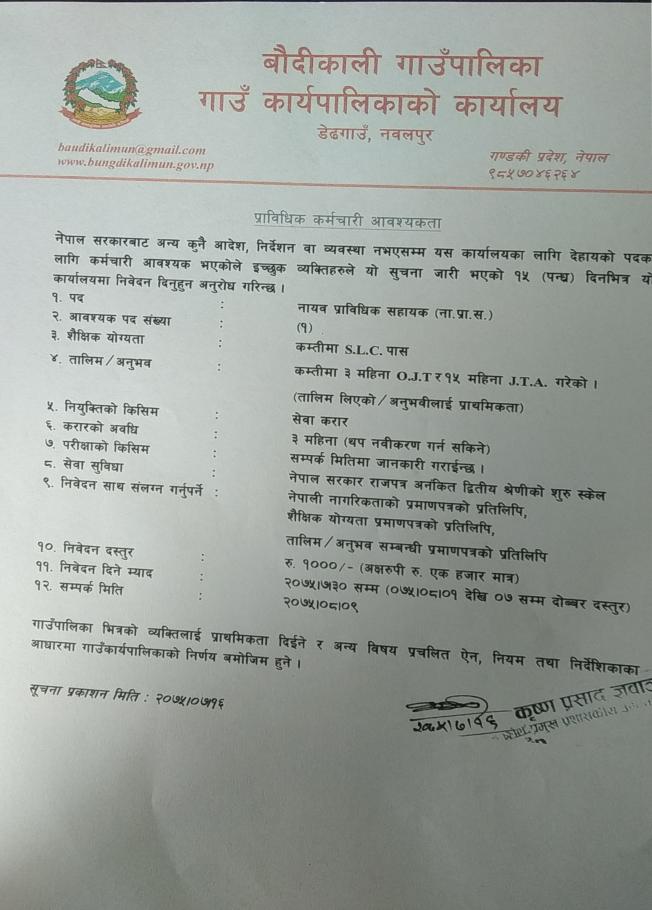 बौदीकाली गाउँपालिका
गाउँ कार्यपालिकाको कार्यालय
डेढगाउँ, नवलपुर
baudikalimun@gmail.com
www.bungdikalimun.gov.np
गण्डकी प्रदेश, नेपाल
९८५७०४६२६४
प्राविधिक कर्मचारी आवश्यकता
नेपाल सरकारबाट अन्य कुनै आदेश, निर्देशन वा व्यवस्था नभएसम्म यस कार्यालयका लागि देहायको पदका
लागि कर्मचारी आवश्यक भएकोले इच्छुक व्यक्तिहरुले यो सुचना जारी भएको १५ (पन्ध्र) दिनभित्र
कार्यालयमा निवेदन दिनुहुन अनुरोध गरिन्छ ।
१. पद : नायव प्राविधिक सहायक (ना.प्रा.स.)
२. आवश्यक पद संख्या : (१)
३. शैक्षिक योग्यता : कम्तीमा S.L.C. पास
४. तालिम/अनुभव : कम्तीमा ३ महिना O.J.T र १५ महिना J.T.A. गरेको ।
(तालिम लिएको/अनुभवीलाई प्राथमिकता)
५. नियुक्तिको किसिम : सेवा करार
६. करारको अवधि : ३ महिना (थप नवीकरण गर्न सकिने)
७. परीक्षाको किसिम : सम्पर्क मितिमा जानकारी गराईन्छ ।
८. सेवा सुविधा : नेपाल सरकार राजपत्र अनंकित द्वितीय श्रेणीको शुरु स्केल
९. निवेदन साथ संलग्न गर्नुपर्ने : नेपाली नागरिकताको प्रमाणपत्रको प्रतिलिपि,
शैक्षिक योग्यता प्रमाणपत्रको प्रतिलिपि,
तालिम/अनुभव सम्बन्धी प्रमाणपत्रको प्रतिलिपि
१०. निवेदन दस्तुर : रु. १०००/- (अक्षरुपी रु. एक हजार मात्र)
११. निवेदन दिने म्याद : २०७५।७।३० सम्म (०७५।०८।०१ देखि ०७ सम्म दोब्बर दस्तुर)
१२. सम्पर्क मिति : २०७५।०८।०९
गाउँपालिका भित्रको व्यक्तिलाई प्राथमिकता दिईने र अन्य विषय प्रचलित ऐन, नियम तथा निर्देशिकाका
आधारमा गाउँकार्यपालिकाको निर्णय बमोजिम हुने ।
सूचना प्रकाशन मिति : २०७५।०७।१६
२०७५।७।१६
कृष्ण प्रसाद ज्ञवाली
प्रमुख प्रशासकीय